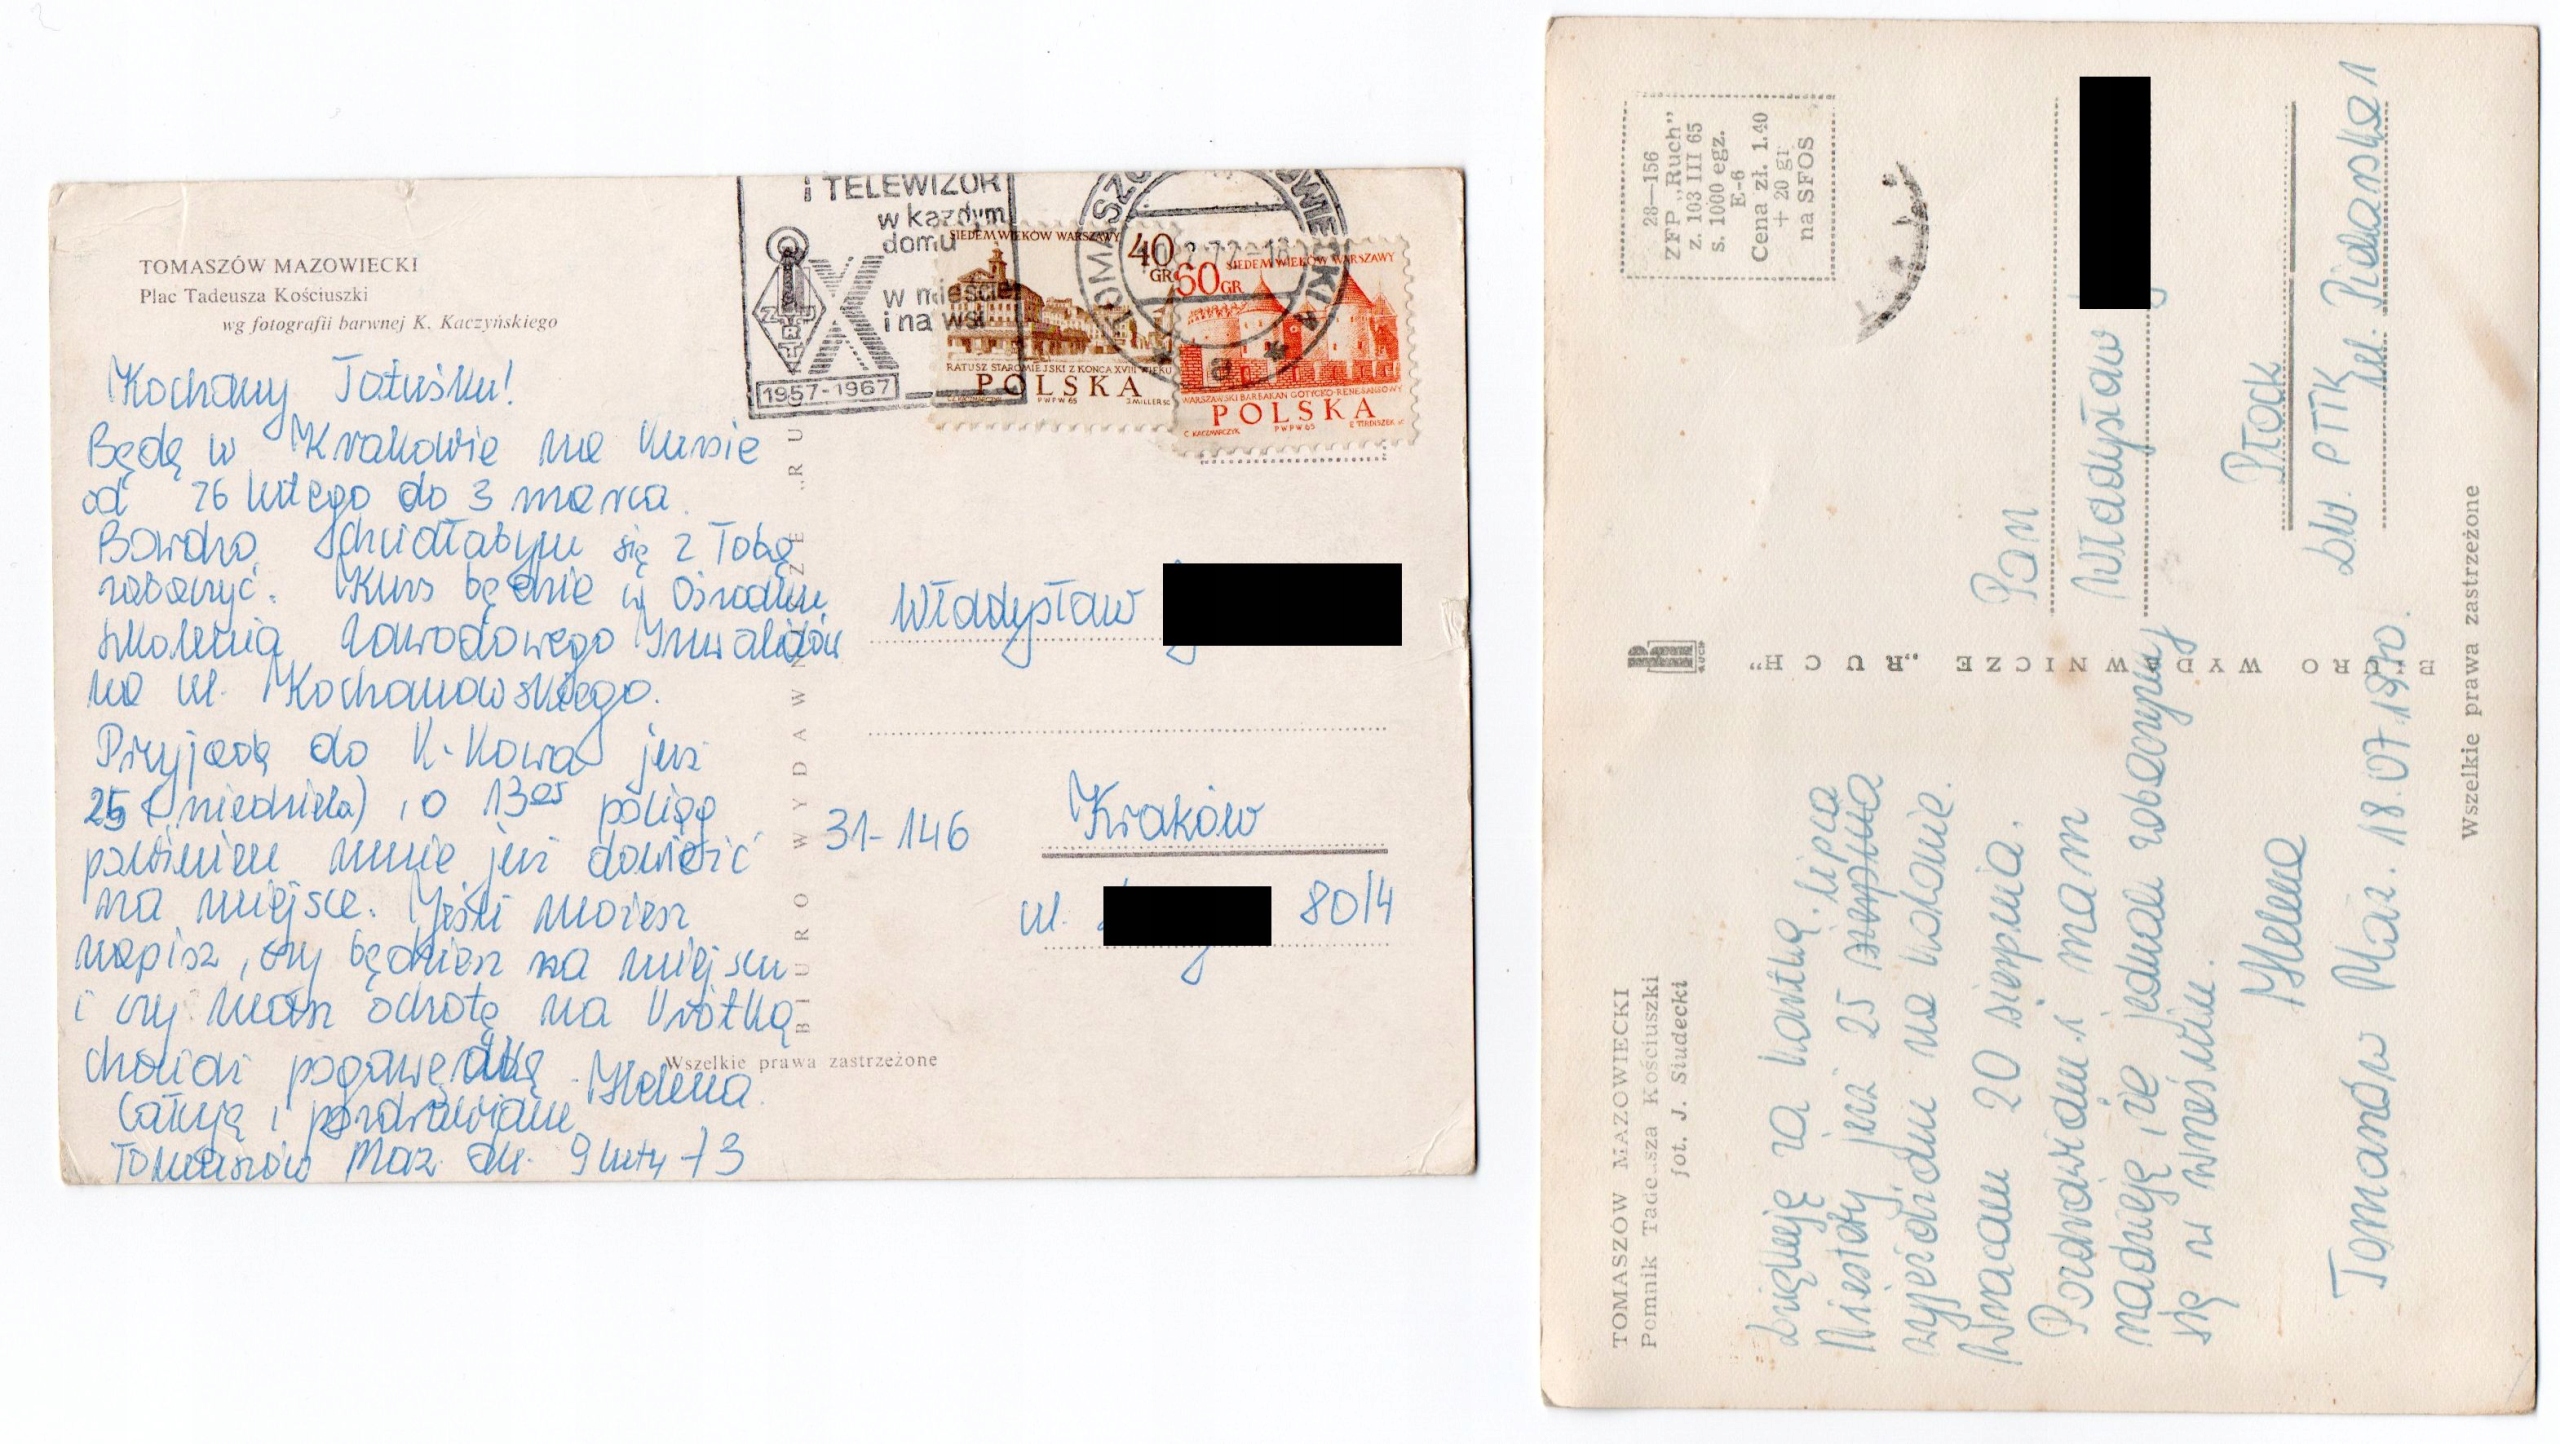 TOMASZÓW MAZOWIECKI
Plac Tadeusza Kościuszki
wg fotografii barwnej K. Kaczyńskiego
Kochany Tatuśku!
Będę w Krakowie na kursie
od 26 lutego do 3 marca.
Bardzo chciałabym się z Tobą
zobaczyć. Kurs będzie w Ośrodku
szkolenia zawodowego Inwalidów
na ul. Kochanowskiego.
Przyjadę do K-kowa już
25 (niedziela), o 13⁰⁵ pociąg
powinien mnie już dowieźć
na miejsce. Jeśli możesz
napisz, czy będziesz na miejscu
i czy masz ochotę na krótką
chociaż pogawędkę. Helena.
Całuję i pozdrawiam
Tomaszów Maz. dn. 9 luty 73
i TELEWIZOR
w każdym
domu
w mieście
i na wsi
X
ZURT
1957-1967
TOMASZÓW MAZOWIECKI
a
SIEDEM WIEKÓW WARSZAWY
40
GR
RATUSZ STAROMIEJSKI Z KOŃCA XVIII WIEKU
POLSKA
PWPW 65
SIEDEM WIEKÓW WARSZAWY
60 GR
WARSZAWSKI BARBAKAN GOTYCKO-RENESANSOWY
POLSKA
C. KACZMARCZYK PWPW 65
BIURO WYDAWNICZE „RU
Władysław
31-146 Kraków
ul. 80/4
Wszelkie prawa zastrzeżone
TOMASZÓW MAZOWIECKI
Pomnik Tade..sza Kościuszki
fot. J. Siudecki
Dziękuję za kartkę.
Niestety już 25 lipca sierpnia
wyjeżdżam na kolonie.
Wracam 20 sierpnia.
Pozdrawiam i mam
nadzieję, że jednak zobaczymy
się we wrześniu.
Helena
Tomaszów Maz. 18.07.1970.
RUCH
BIURO WYDAWNICZE „RUCH”
28—156
ZFP „Ruch”
z. 103 III 65
s. 1000 egz.
E-6
Cena zł. 1.40
+ 20 gr
na SFOS
Pan
Władysław
Płock
bw. PTTK
ul. Piekarska 1
Wszelkie prawa zastrzeżone